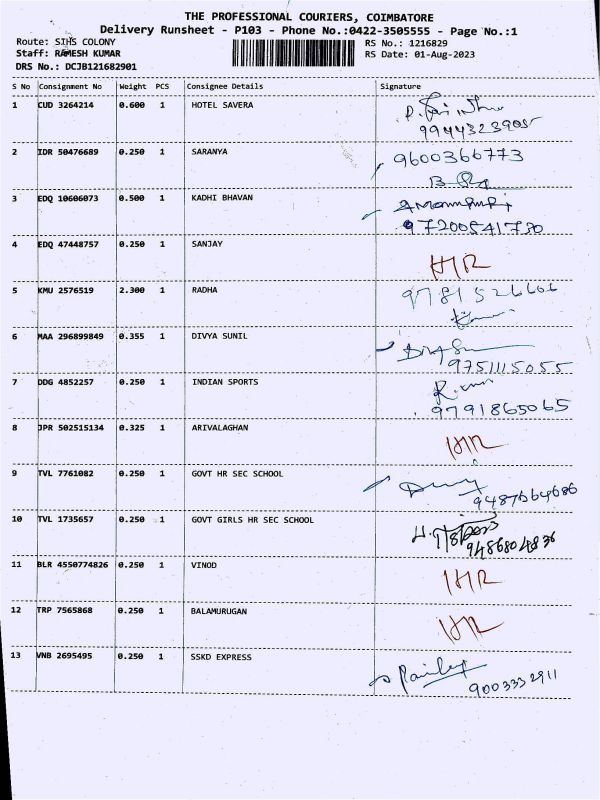 THE PROFESSIONAL COURIERS, COIMBATORE
Delivery Runsheet - P103 - Phone No.:0422-3505555 - Page No.:1
Route: SIHS COLONY RS No.: 1216829
Staff: RAMESH KUMAR RS Date: 01-Aug-2023
DRS No.: DCJB121682901
S No Consignment No Weight PCS Consignee Details Signature
1 CUD 3264214 0.600 1 HOTEL SAVERA
2 IDR 50476689 0.250 1 SARANYA 9600366773
3 EDQ 10606073 0.500 1 KADHI BHAVAN
97200541730
4 EDQ 47448757 0.250 1 SANJAY
5 KMU 2576519 2.300 1 RADHA 9781526606
6 MAA 296899849 0.355 1 DIVYA SUNIL
9751115055
7 DDG 4852257 0.250 1 INDIAN SPORTS
9791865065
8 JPR 502515134 0.325 1 ARIVALAGHAN
9 TVL 7761082 0.250 1 GOVT HR SEC SCHOOL
9487664686
10 TVL 1735657 0.250 1 GOVT GIRLS HR SEC SCHOOL
9486804836
11 BLR 4550774826 0.250 1 VINOD
12 TRP 7565868 0.250 1 BALAMURUGAN
13 VNB 2695495 0.250 1 SSKD EXPRESS
9003332911